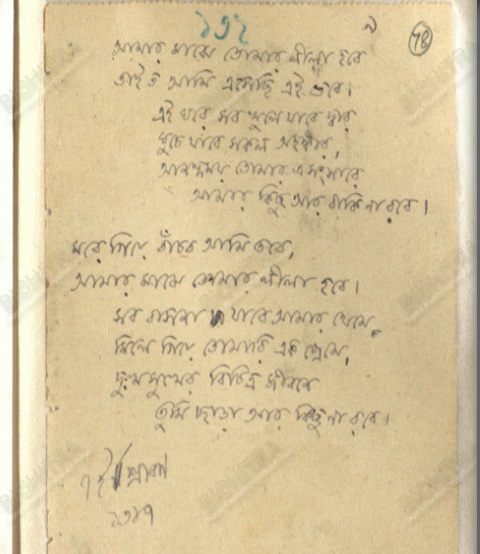 ১৩২
78
আমার মাঝে তোমার লীলা হবে
তাই ত আমি এসেছি এই ভবে।
এই ঘরে সব খুলে যাবে দ্বার
ঘুচে যাবে সকল অহঙ্কার,
আনন্দময় তোমার এ সংসারে
আমার কিছু আর বাকি না রবে।
মরে গিয়ে বাঁচব আমি তবে,
আমার মাঝে তোমার লীলা হবে।
সব বাসনা যাবে আমার থেমে,
মিলে গিয়ে তোমারি এক প্রেমে,
দুঃখসুখের বিচিত্র জীবনে
তুমি ছাড়া আর কিছু না রবে।
৭ই শ্রাবণ
১৩১৭